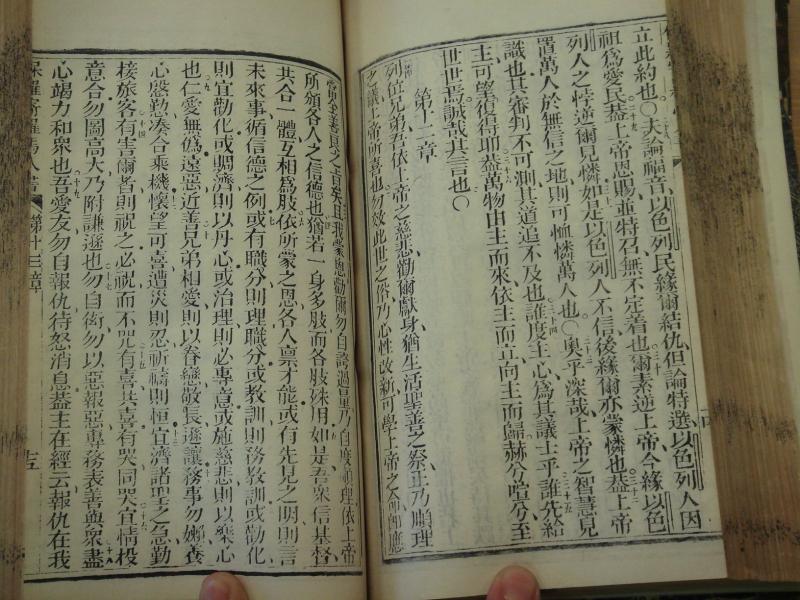 立此約也〇夫論福音以色列民緣爾結仇但論特選以色列人因
祖爲愛民蓋上帝恩賜並特召無不定着也爾素逆上帝今緣以色
列人之悖逆爾見憐如是以色列人不信後緣爾亦蒙憐也蓋上帝
置萬人於無信之地則可恤憐萬人也〇奧乎深哉上帝之智慧見
識也其審判不可測其道追不及也誰度主心爲其議士乎誰先給
主可望復得耶蓋萬物由主而來依主而立向主而歸赫兮喧兮至
世世焉誠哉其言也〇
第十二章
列位兄弟若依上帝之慈悲勸爾獻身猶生活聖善之祭乃順理
之議上帝所喜也勿效此世之俗乃心性改新可學上帝之命即應
當 善良之旨矣且我蒙恩勸爾勿自誇過量乃自度順理依上帝
所頒各人之信德也猶若一身多肢而各肢殊用如是吾衆信基督
共合一體互相爲肢依所蒙之恩各人禀才能或有先見之明則言
未來事循信德之例或有職分則理職分或教訓則務教訓或勸化
則宜勸化或賙濟則以丹心或治理則必專意或施慈悲則以樂心
也仁愛無僞遠惡近善兄弟相愛則以眷戀敬長遜讓務事勿嬾養
心慇勤湊合乘機懷望可喜遭災則忍祈禱則恒宜濟諸聖之急勤
接旅客有害爾者則祝之必祝而不咒有喜共喜有哭同哭宜情投
意合勿圖高大乃附謙遜也勿自衒勿以惡報惡專務表善與衆盡
心竭力和衆也吾愛友勿自報仇待怒消息蓋主在經云報仇在我
保羅寄羅馬人書 第十三章 十五